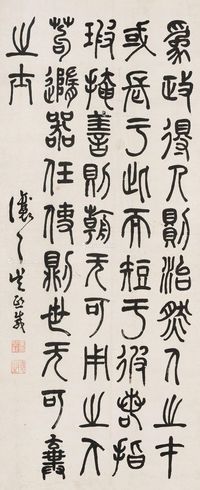 為政得人則治然人之才
或長于此而短于彼若指
瑕掩善則朝无可用之人
苟隨器任使則世无可棄
之士
讓之吳熙載